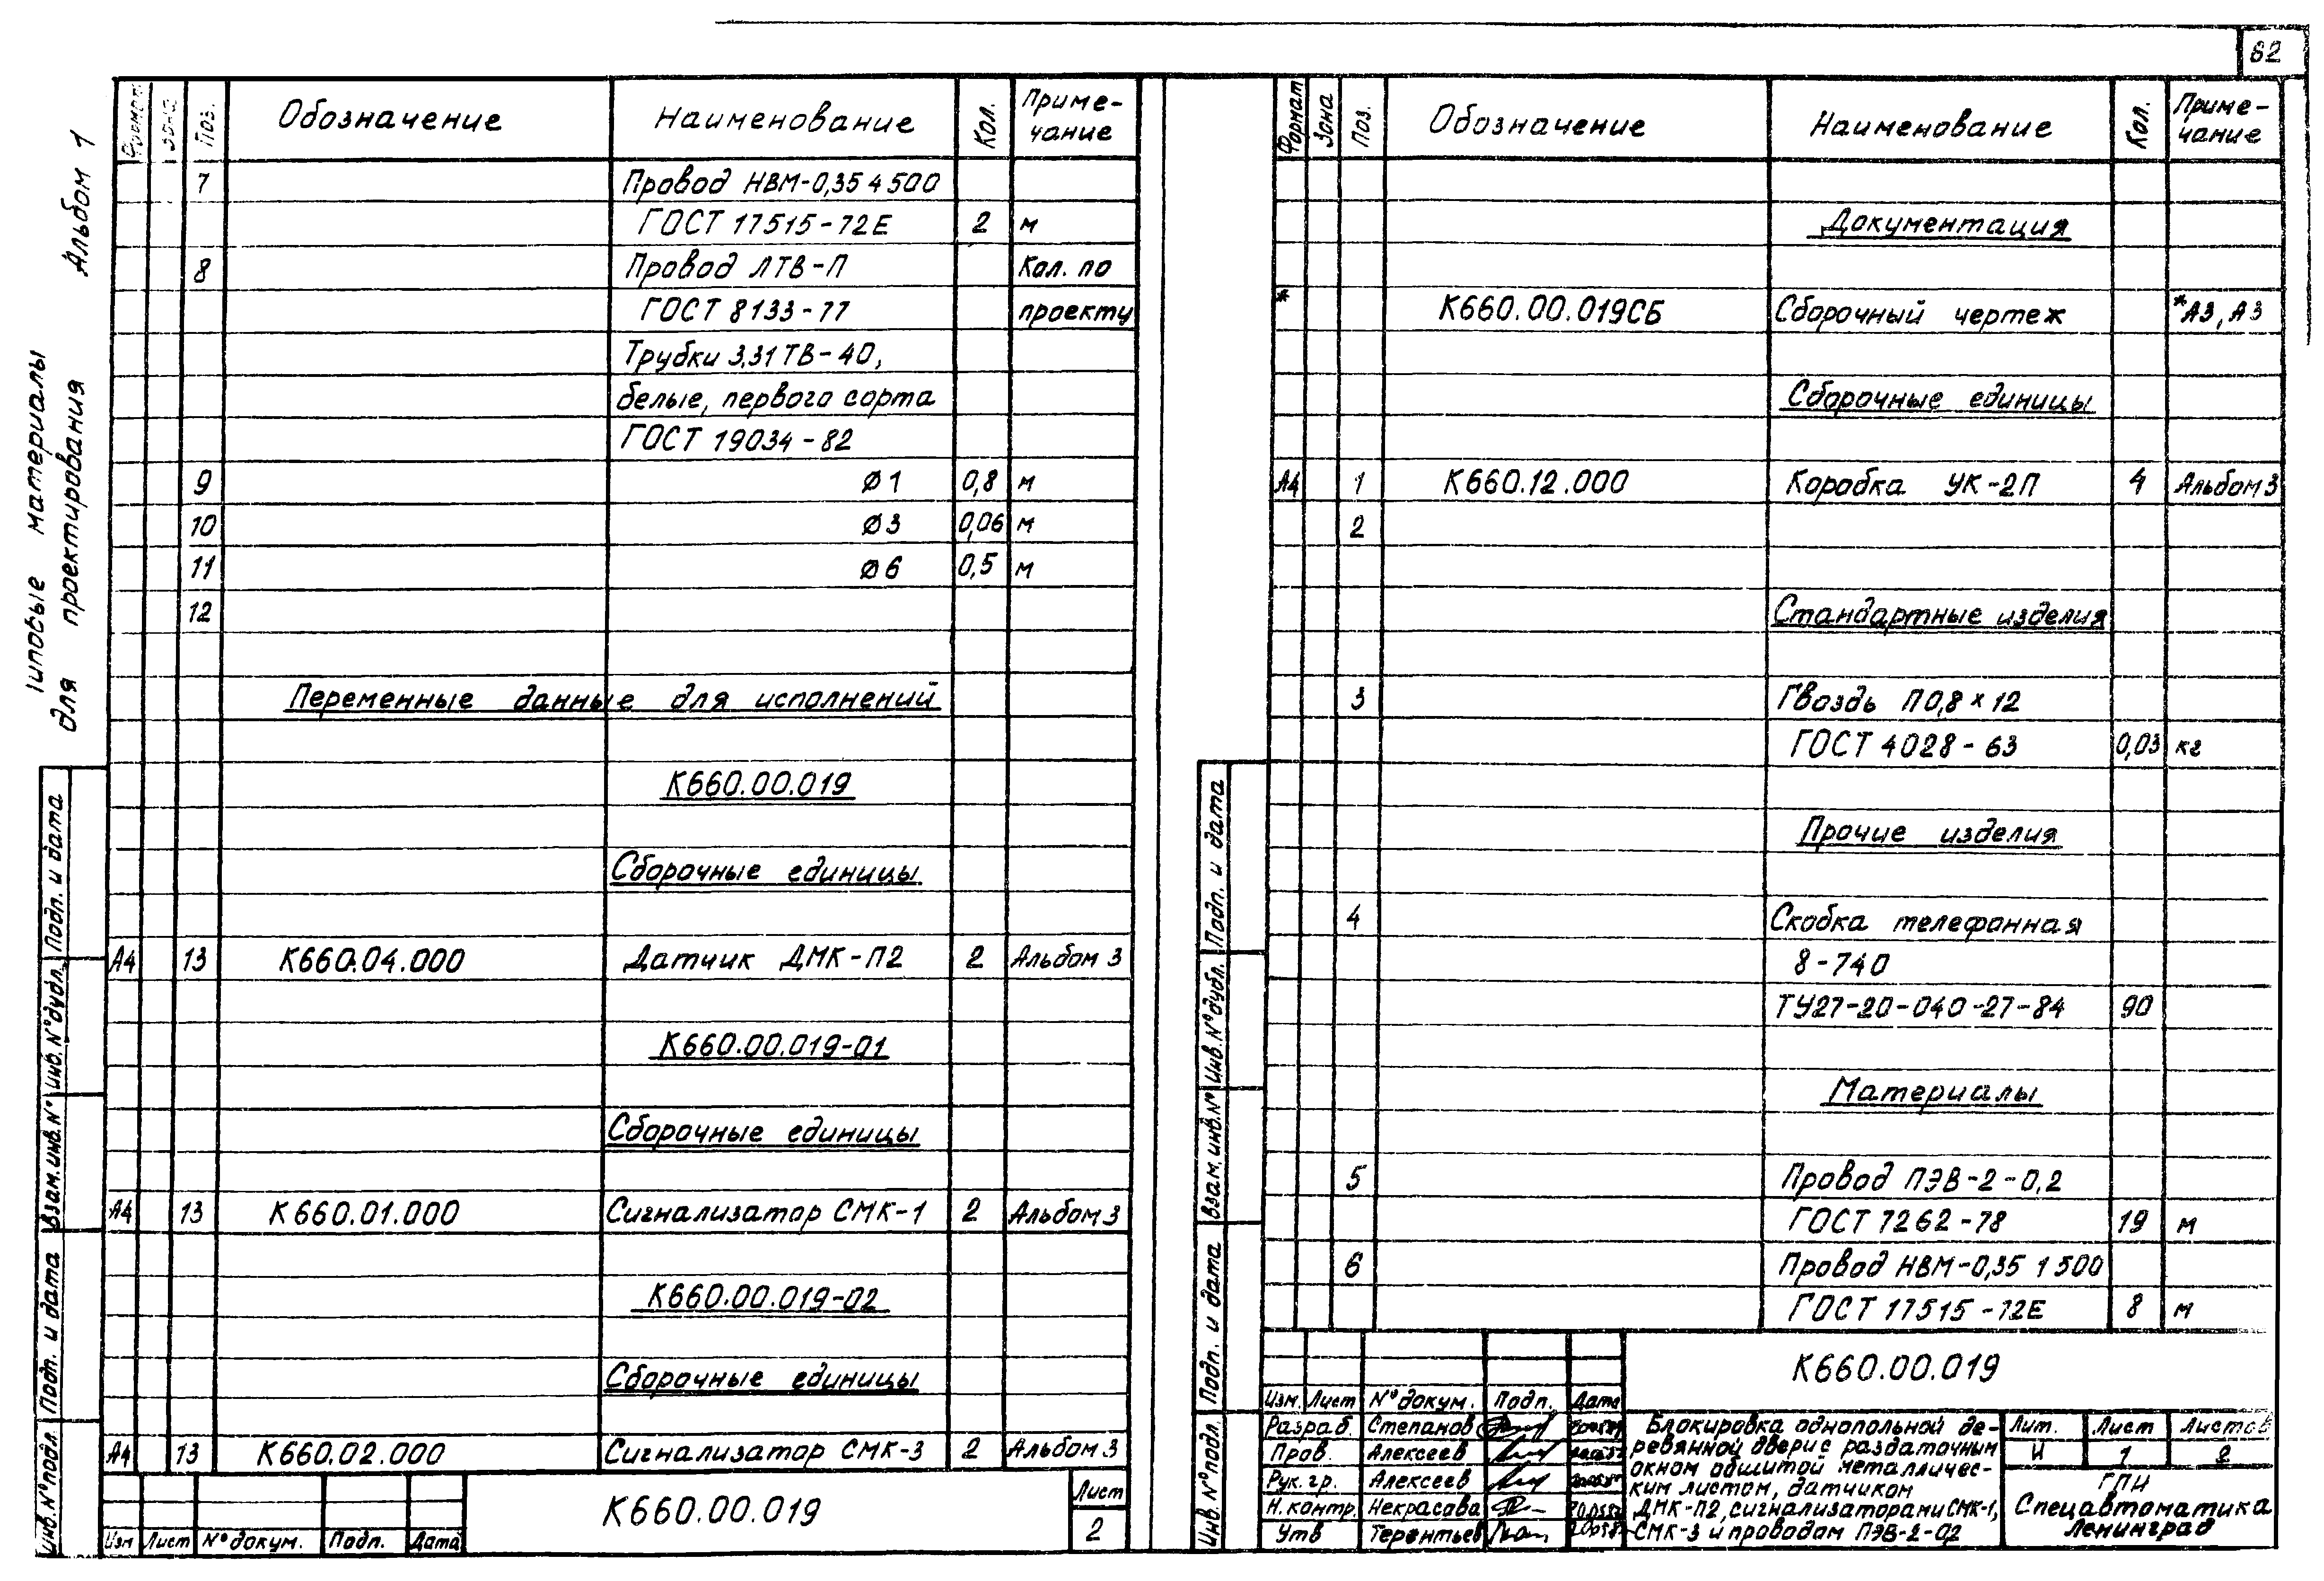 82
Альбом 1
Типовые материалы
для проектирования
Формат Зона Поз. Обозначение Наименование Кол. Приме-
чание
7 Провод НВМ-0,35 4 500
ГОСТ 17515-72Е 2 м
8 Провод ЛТВ-П Кол. по
ГОСТ 8133-77 проекту
Трубки 3,31 ТВ-40,
белые, первого сорта
ГОСТ 19034-82
9 Ø1 0,8 м
10 Ø3 0,06 м
11 Ø6 0,5 м
12
Переменные данные для исполнений
К660.00.019
Сборочные единицы
А4 13 К660.04.000 Датчик ДМК-П2 2 Альбом 3
К660.00.019-01
Сборочные единицы
А4 13 К660.01.000 Сигнализатор СМК-1 2 Альбом 3
К660.00.019-02
Сборочные единицы
А4 13 К660.02.000 Сигнализатор СМК-3 2 Альбом 3
К660.00.019
Лист
2
Изм Лист № докум. Подп. Дата
Инв. № подл. Подп. и дата Взам. инв. № Инв. № дубл. Подп. и дата
Формат Зона Поз. Обозначение Наименование Кол. Приме-
чание
Документация
* К660.00.019СБ Сборочный чертеж *А3, А3
Сборочные единицы
А4 1 К660.12.000 Коробка УК-2П 4 Альбом 3
2
Стандартные изделия
3 Гвоздь П 0,8 × 12
ГОСТ 4028-63 0,03 кг
Прочие изделия
4 Скобка телефонная
8-740
ТУ27-20-040-27-84 90
Материалы
5 Провод ПЭВ-2-0,2
ГОСТ 7262-78 19 м
6 Провод НВМ-0,35 1 500
ГОСТ 17515-72Е 8 м
Инв. № подл. Подп. и дата Взам. инв. № Инв. № дубл. Подп. и дата
К660.00.019
Изм. Лист № докум. Подп. Дата
Разраб. Степанов
Пров. Алексеев
Рук. гр. Алексеев
Н. контр. Некрасова
Утв Терентьев
Блокировка однопольной де-
ревянной двери с раздаточным
окном обшитой металличес-
ким листом, датчиком
ДМК-П2, сигнализаторами СМК-1,
СМК-3 и проводом ПЭВ-2-02
Лит. Лист Листов
И 1 2
ГПИ
Спецавтоматика
Ленинград